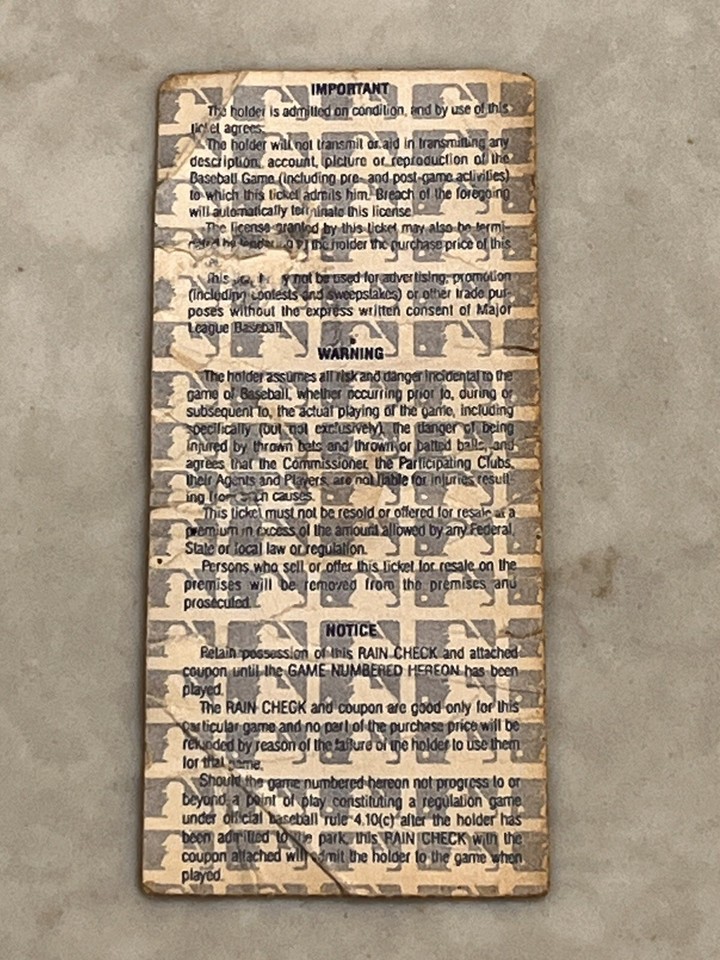 IMPORTANT
The holder is admitted on condition, and by use of this
ticket agrees:
The holder will not transmit or aid in transmitting any
description, account, picture or reproduction of the
Baseball Game (including pre- and post-game activities)
to which this ticket admits him. Breach of the foregoing
will automatically terminate this license.
The license granted by this ticket may also be termi-
nated by tendering to the holder the purchase price of this
This may not be used for advertising, promotion
(including contests and sweepstakes) or other trade pur-
poses without the express written consent of Major
League Baseball.
WARNING
The holder assumes all risk and danger incidental to the
game of Baseball, whether occurring prior to, during or
subsequent to, the actual playing of the game, including
specifically (but not exclusively), the danger of being
injured by thrown bats and thrown or batted balls, and
agrees that the Commissioner, the Participating Clubs,
their Agents and Players, are not liable for injuries result-
ing from such causes.
This ticket must not be resold or offered for resale at a
premium in excess of the amount allowed by any Federal,
State or local law or regulation.
Persons who sell or offer this ticket for resale on the
premises will be removed from the premises and
prosecuted.
NOTICE
Retain possession of this RAIN CHECK and attached
coupon until the GAME NUMBERED HEREON has been
played.
The RAIN CHECK and coupon are good only for this
particular game and no part of the purchase price will be
refunded by reason of the failure of the holder to use them
for that game.
Should the game numbered hereon not progress to or
beyond a point of play constituting a regulation game
under official baseball rule 4.10(c) after the holder has
been admitted to the park, this RAIN CHECK with the
coupon attached will admit the holder to the game when
played.